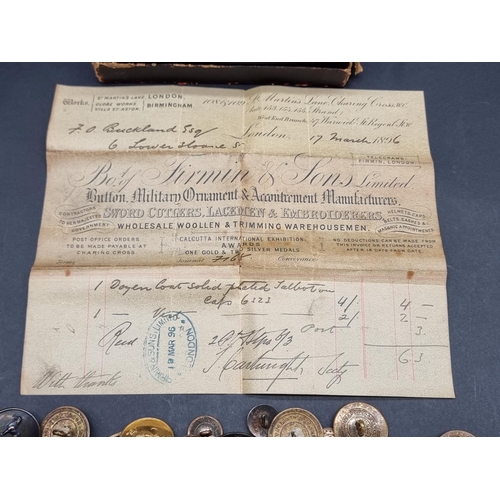 Works. ST MARTINS LANE, LONDON,
GLOBE WORKS,
VILLA ST ASTON BIRMINGHAM
108 & 109 St Martin's Lane, Charing Cross, W.C.
Late 153, 154, 155, Strand,
West End Branch, 47 Warwick St Regent St W
F. O. Buckland Esq
6 Lower Sloane S
London, 17 March 1896
TELEGRAMS
FIRMIN, LONDON.
Bot of Firmin & Sons Limited
Button, Military Ornament & Accoutrement Manufacturers,
SWORD CUTLERS, LACEMEN & EMBROIDERERS,
WHOLESALE WOOLLEN & TRIMMING WAREHOUSEMEN.
CONTRACTORS
TO HER MAJESTYS
GOVERNMENT
HELMETS, CAPS,
BELTS, SASHES &
MASONIC APPOINTMENTS
POST OFFICE ORDERS
TO BE MADE PAYABLE AT
CHARING CROSS.
CALCUTTA INTERNATIONAL EXHIBITION
AWARDS
ONE GOLD & TWO SILVER MEDALS.
NO DEDUCTIONS CAN BE MADE FROM
THIS INVOICE OR RETURNS ACCEPTED
AFTER 10 DAYS FROM DATE
Conveyance
1 Dozen Coat solid plated Talbot on
Cap 6323 4/- 4 -
1 - Vest 2/- 2 -
Post 3
6 3
Recd
FIRMIN & SONS LIMITED
19 MAR 96
LONDON
J Cartwright Secty
With thanks